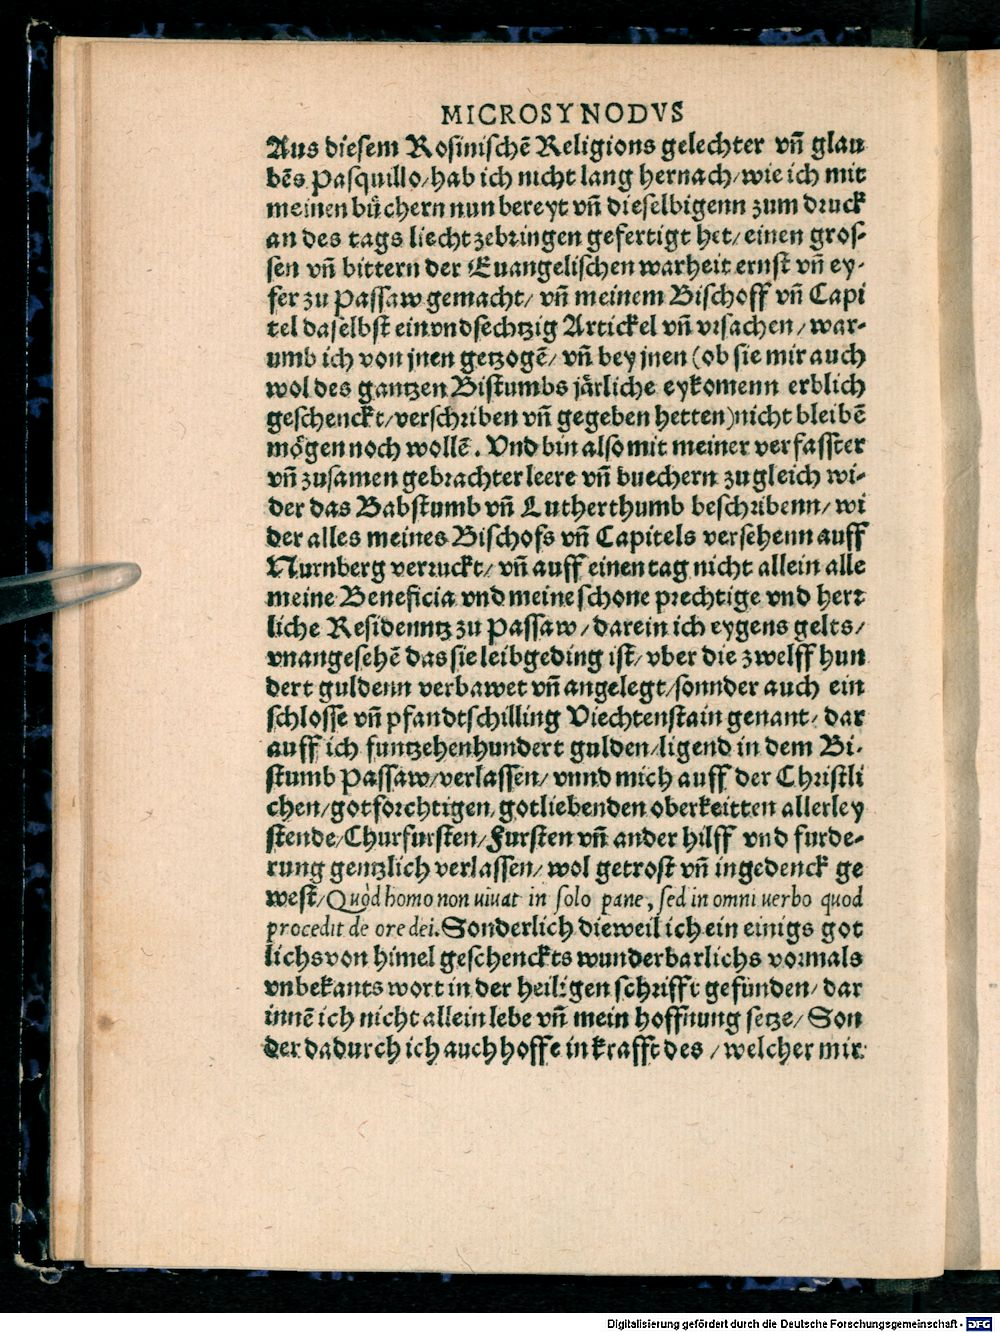 MICROSYNODVS
Aus diesem Rosinischē Religions gelechter vn̄ glau
bēs Pasquillo/hab ich nicht lang hernach/wie ich mit
meinen bůchern nun bereyt vn̄ dieselbigenn zum druck
an des tags liecht zebringen gefertigt het/einen gros-
sen vn̄ bittern der Euangelischen warheit ernst vn̄ ey-
fer zu Passaw gemacht/ vn̄ meinem Bischoff vn̄ Capi
tel daselbst einvndsechtzig Artickel vn̄ vrsachen/war-
umb ich von jnen getzogē/ vn̄ bey jnen (ob sie mir auch
wol des gantzen Bistumbs jaͤrliche eykomenn erblich
geschenckt/verschriben vn̄ gegeben hetten)nicht bleibē
moͤgen noch wollē. Vnd bin also mit meiner verfasster
vn̄ zusamen gebrachter leere vn̄ buechern zugleich wi-
der das Babstumb vn̄ Lutherthumb beschribenn/ wi
der alles meines Bischofs vn̄ Capitels versehenn auff
Nurnberg verruckt/ vn̄ auff einen tag nicht allein alle
meine Beneficia vnd meine schone prechtige vnd herr
liche Residenntz zu Passaw/darein ich eygens gelts/
vnangesehē das sie leibgeding ist/ vber die zwelff hun
dert guldenn verbawet vn̄ angelegt/sonnder auch ein
schlosse vn̄ pfandtschilling Viechtenstain genant/ dar
auff ich funtzehenhundert gulden/ligend in dem Bi-
stumb Passaw/verlassen/ vnnd mich auff der Christli
chen/gotforchtigen, gotliebenden oberkeitten allerley
stende/Churfursten/Fursten vn̄ ander hilff vnd furde-
rung gentzlich verlassen/ wol getrost vn̄ ingedenck ge
west/Quòd homo non uiuat in solo pane, sed in omni uerbo quod
procedit de ore dei.Sonderlich dieweil ich ein einigs got
lichs von himel geschenckts wunderbarlichs vormals
vnbekants wort in der heiligen schrifft gefunden/ dar
innē ich nicht allein lebe vn̄ mein hoffnung setze/ Son
der dadurch ich auch hoffe in krafft des /welcher mir
Digitalisierung gefördert durch die Deutsche Forschungsgemeinschaft - DFG